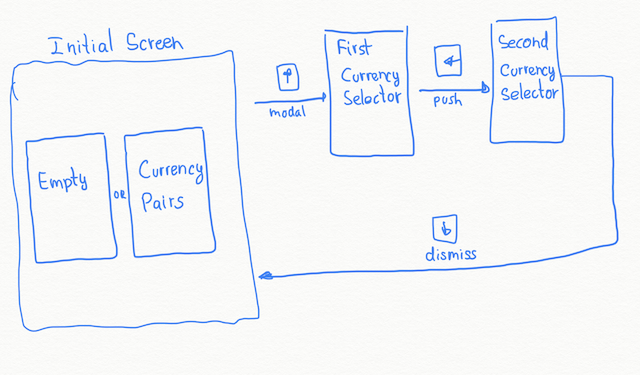 Initial Screen
Empty
OR
Currency
Pairs
modal
First
Currency
Selector
push
Second
Currency
Selector
dismiss